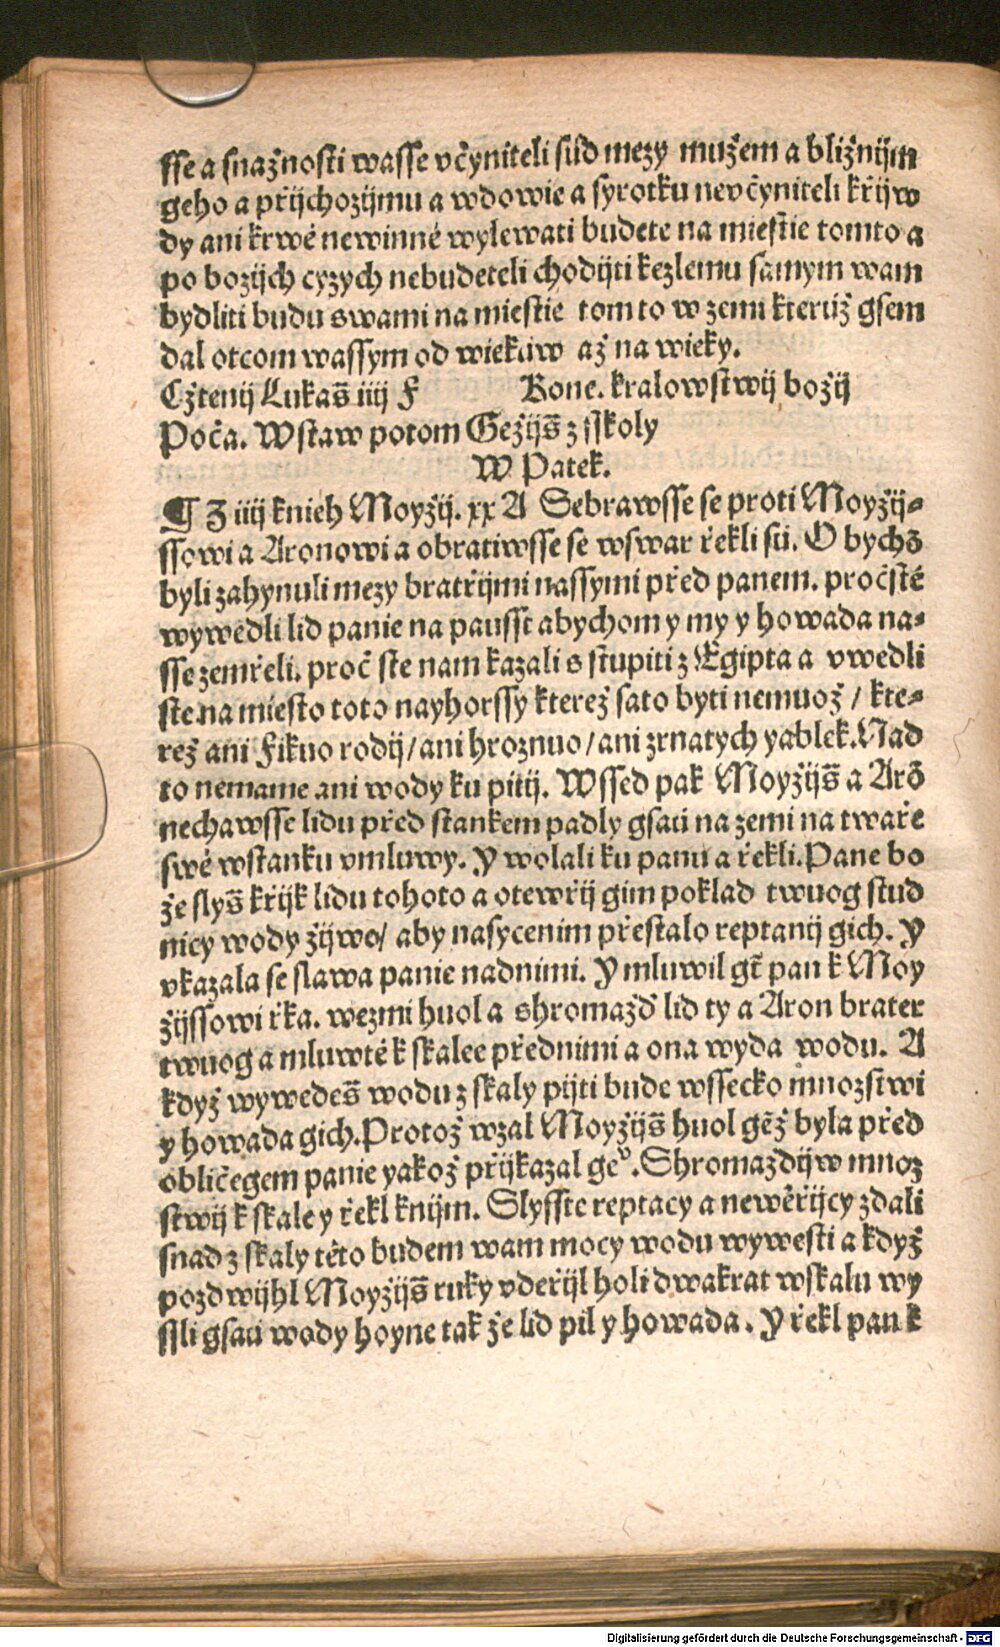 sse a snažnosti wasse včyniteli sud mezy mužem a bližnijm
geho a přijchozijmu a wdowie a syrotku nevčyniteli křijw
dy ani krwe newinné wylewati budete na miestie tomto a
po bozijch cyzych nebudeteli chodijti kezlemu samym wam
bydliti budu swami na miestie tom to w zemi kteruž gsem
dal otcom wassym od wiekuw až na wieky.
Cžtenij Lukaš iiij F Kone. kralowstwij božij
Poča. Wstaw potom Gežijš z sskoly
W Patek.
¶ Z iiij knieh Moyžij. xx A Sebrawsse se proti Moyžij-
ssowi a Aronowi a obratiwsse se wswar řekli sú. O bychō
byli zahynuli mezy bratřijmi nassymi před panem. pročsté
wywedli lid panie na paussť abychom y my y howada na-
sse zemřeli. proč ste nam kazali s stupiti z Egipta a vwedli
ste na miesto toto nayhorssy kterež sato byti nemuož / kte-
rež ani Fikuo rodij/ ani hroznuo / ani zrnatych yablek. Nad
to nemame ani wody ku pitij. Wssed pak Moyžijš a Arō
nechawsse lidu před stankem padly gsaú na zemi na twaře
swé wstanku vmluwy. Y wolali ku panu a řekli. Pane bo
že slyš křijk lidu tohoto a otewřij gim poklad twuog stud
nicy wody žijwe/ aby nasycenim přestalo reptanij gich. Y
vkazala se slawa panie nadnimi. Y mluwil gť pan k Moy
žijssowi řka. wezmi huol a shromažď lid ty a Aron brater
twuog a mluwté k skalee přednimi a ona wyda wodu. A
když wywedeš wodu z skaly pijti bude wssecko mnozstwi
y howada gich. Protož wzal Moyžijš huol gēž byla před
obličegem panie yakož přijkazal geͮ. Shromaždijw mnoz
stwij k skale y řekl knijm. Slyssте reptacy a newěřijcy zdali
snad z skaly této budem wam mocy wodu wywesti a když
pozdwijhl Moyžijš ruky vdeřijl holi dwakrat wskalu wy
ssli gsaú wody hoyne tak že lid pil y howada. Y řekl pan k
Digitalisierung gefördert durch die Deutsche Forschungsgemeinschaft - DFG